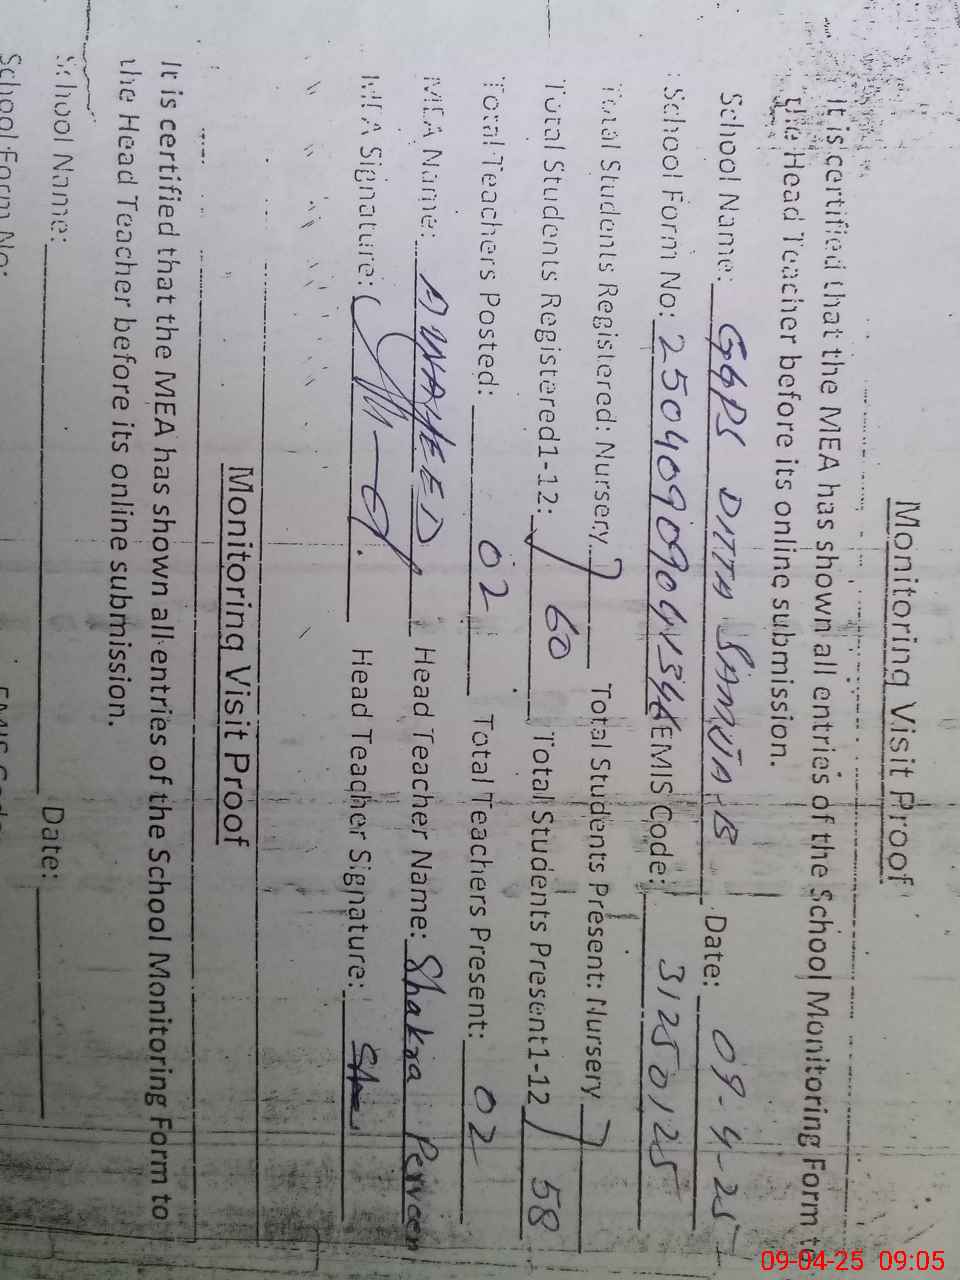 Monitoring Visit Proof
It is certified that the MEA has shown all entries of the School Monitoring Form to
the Head Teacher before its online submission.
School Name: GGPS DITTA SAMUJA-B Date: 09-4-25
School Form No: EMIS Code: 31250125
Total Students Registered: Nursery Total Students Present: Nursery
Total Students Registered1-12: 60 Total Students Present1-12 58
Total Teachers Posted: 02 Total Teachers Present: 02
MEA Name: Head Teacher Name: Shakra Perveen
MEA Signature: Head Teacher Signature:
Monitoring Visit Proof
It is certified that the MEA has shown all entries of the School Monitoring Form to
the Head Teacher before its online submission.
School Name: Date:
School Form No:
09-04-25 09:05